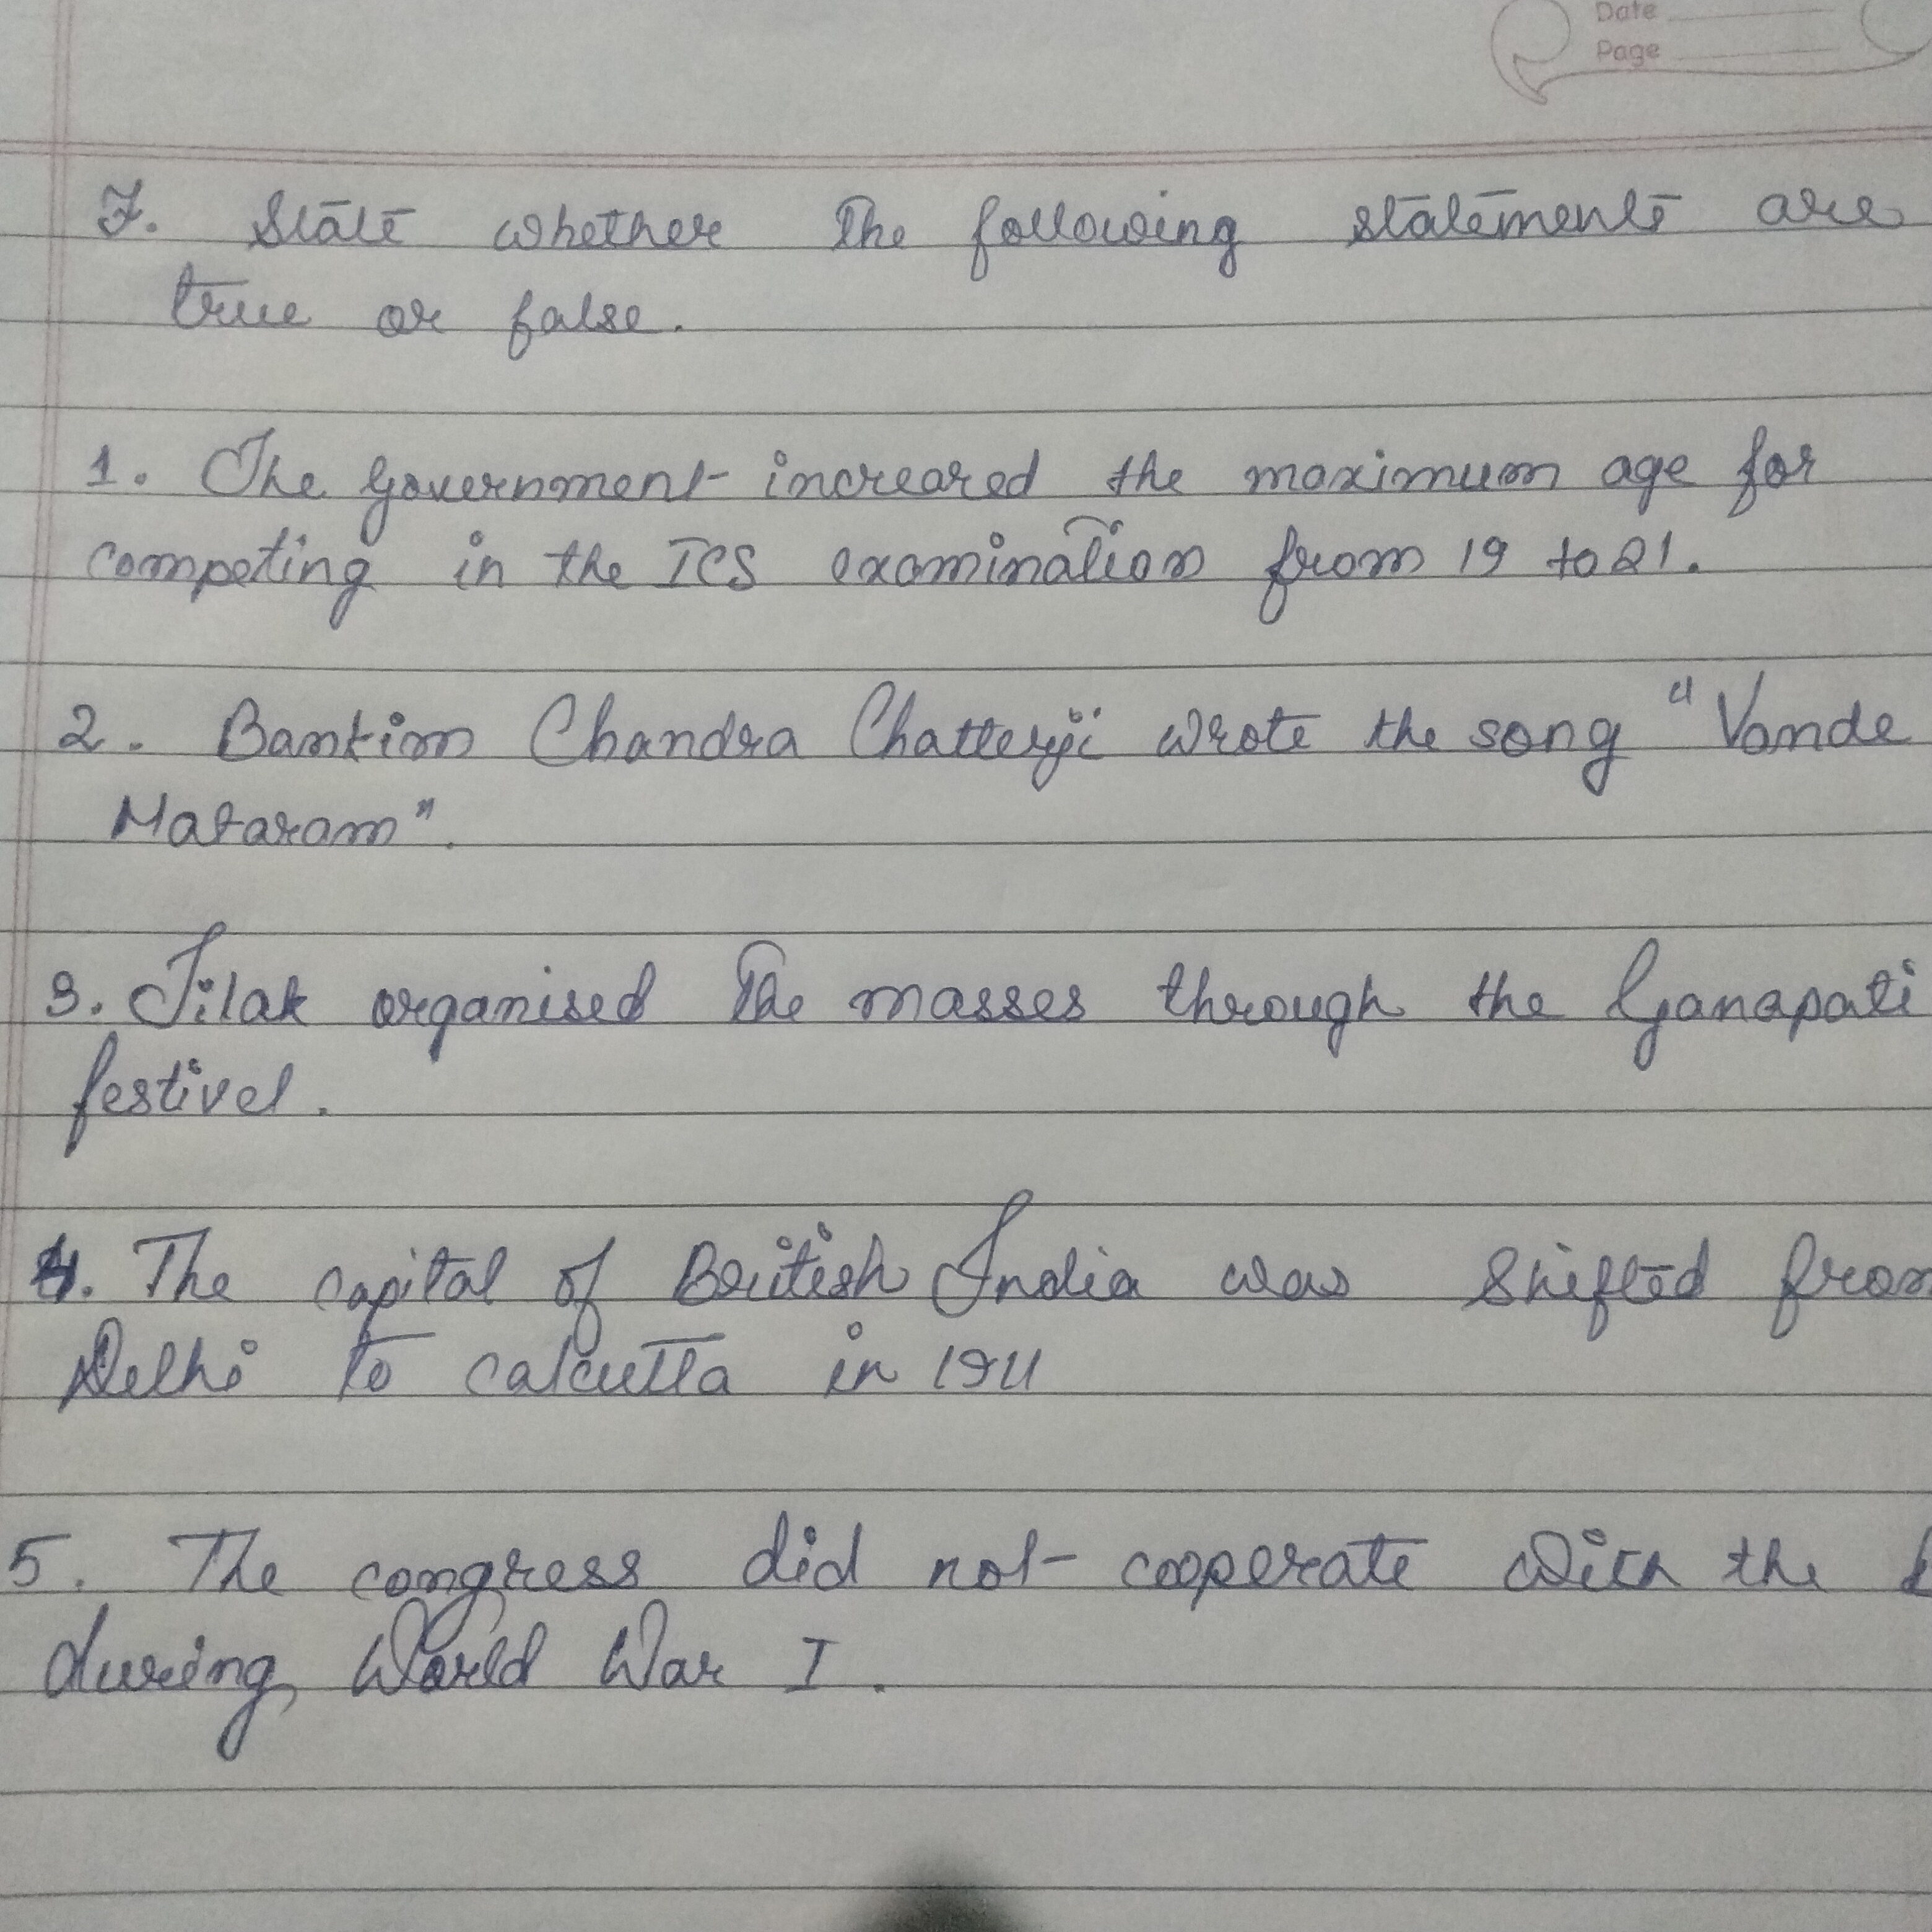 Date
Page
7. State whether the following statements are
true or false.
1. The government increared the maximum age for
competing in the ICS examination from 19 to 21.
2. Bankim Chandra Chatterji wrote the song "Vande
Mataram".
3. Tilak organised the masses through the Ganapati
festivel.
4. The capital of British India was shifted from
Delhi to calcutta in 1911
5. The congress did not cooperate with the
during World War I.